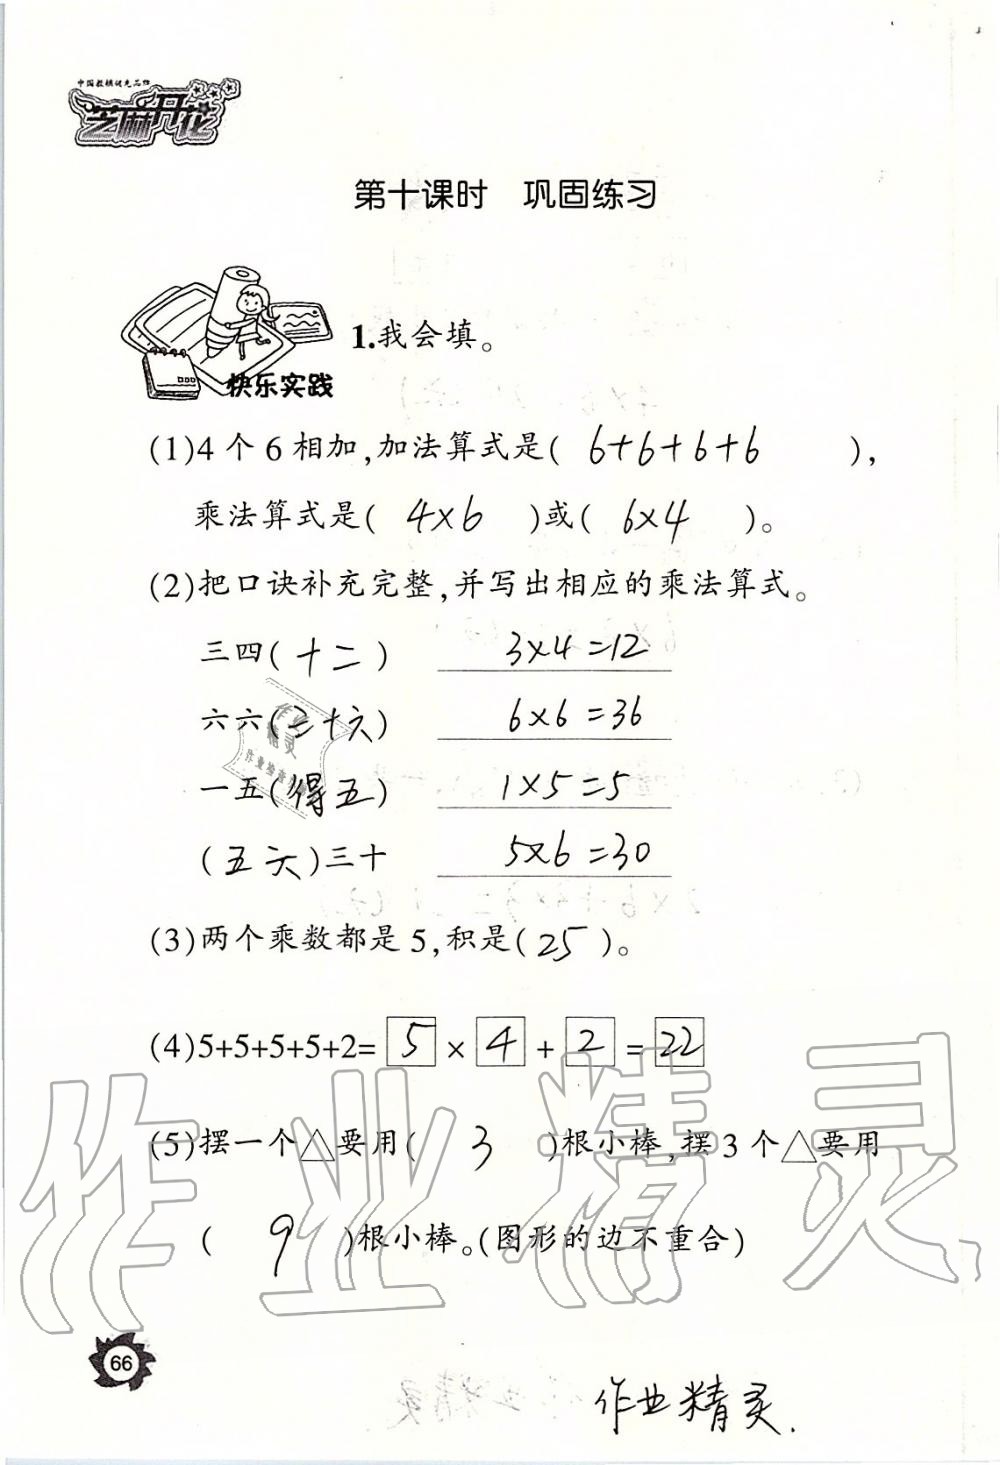 中国教辅优秀品牌
芝麻开花
第十课时 巩固练习
快乐实践
1.我会填。
(1)4个6相加,加法算式是( 6+6+6+6 ),
乘法算式是( 4×6 )或( 6×4 )。
(2)把口诀补充完整,并写出相应的乘法算式。
三四(十二) 3×4=12
六六(三十六) 6×6=36
一五(得五) 1×5=5
(五六)三十 5×6=30
(3)两个乘数都是5,积是(25)。
(4)5+5+5+5+2= 5 × 4 + 2 = 22
(5)摆一个△要用( 3 )根小棒,摆3个△要用
( 9 )根小棒。(图形的边不重合)
作业精灵
66
作业精灵.